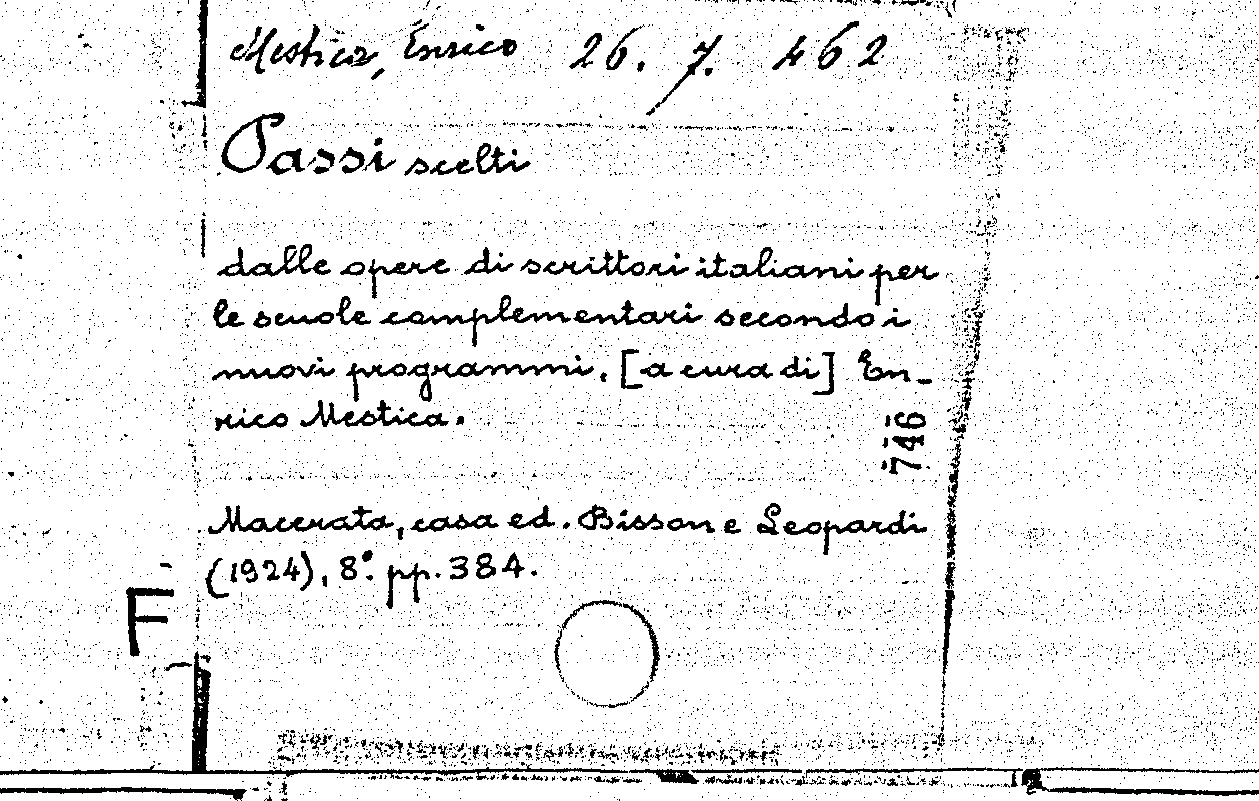 Mestica, Enrico 26. 7. 462
Passi scelti
dalle opere di scrittori italiani per
le scuole complementari secondo i
nuovi programmi. [a cura di] En-
rico Mestica.
746
Macerata, casa ed. Bisson e Leopardi
(1924), 8º. pp. 384.
F